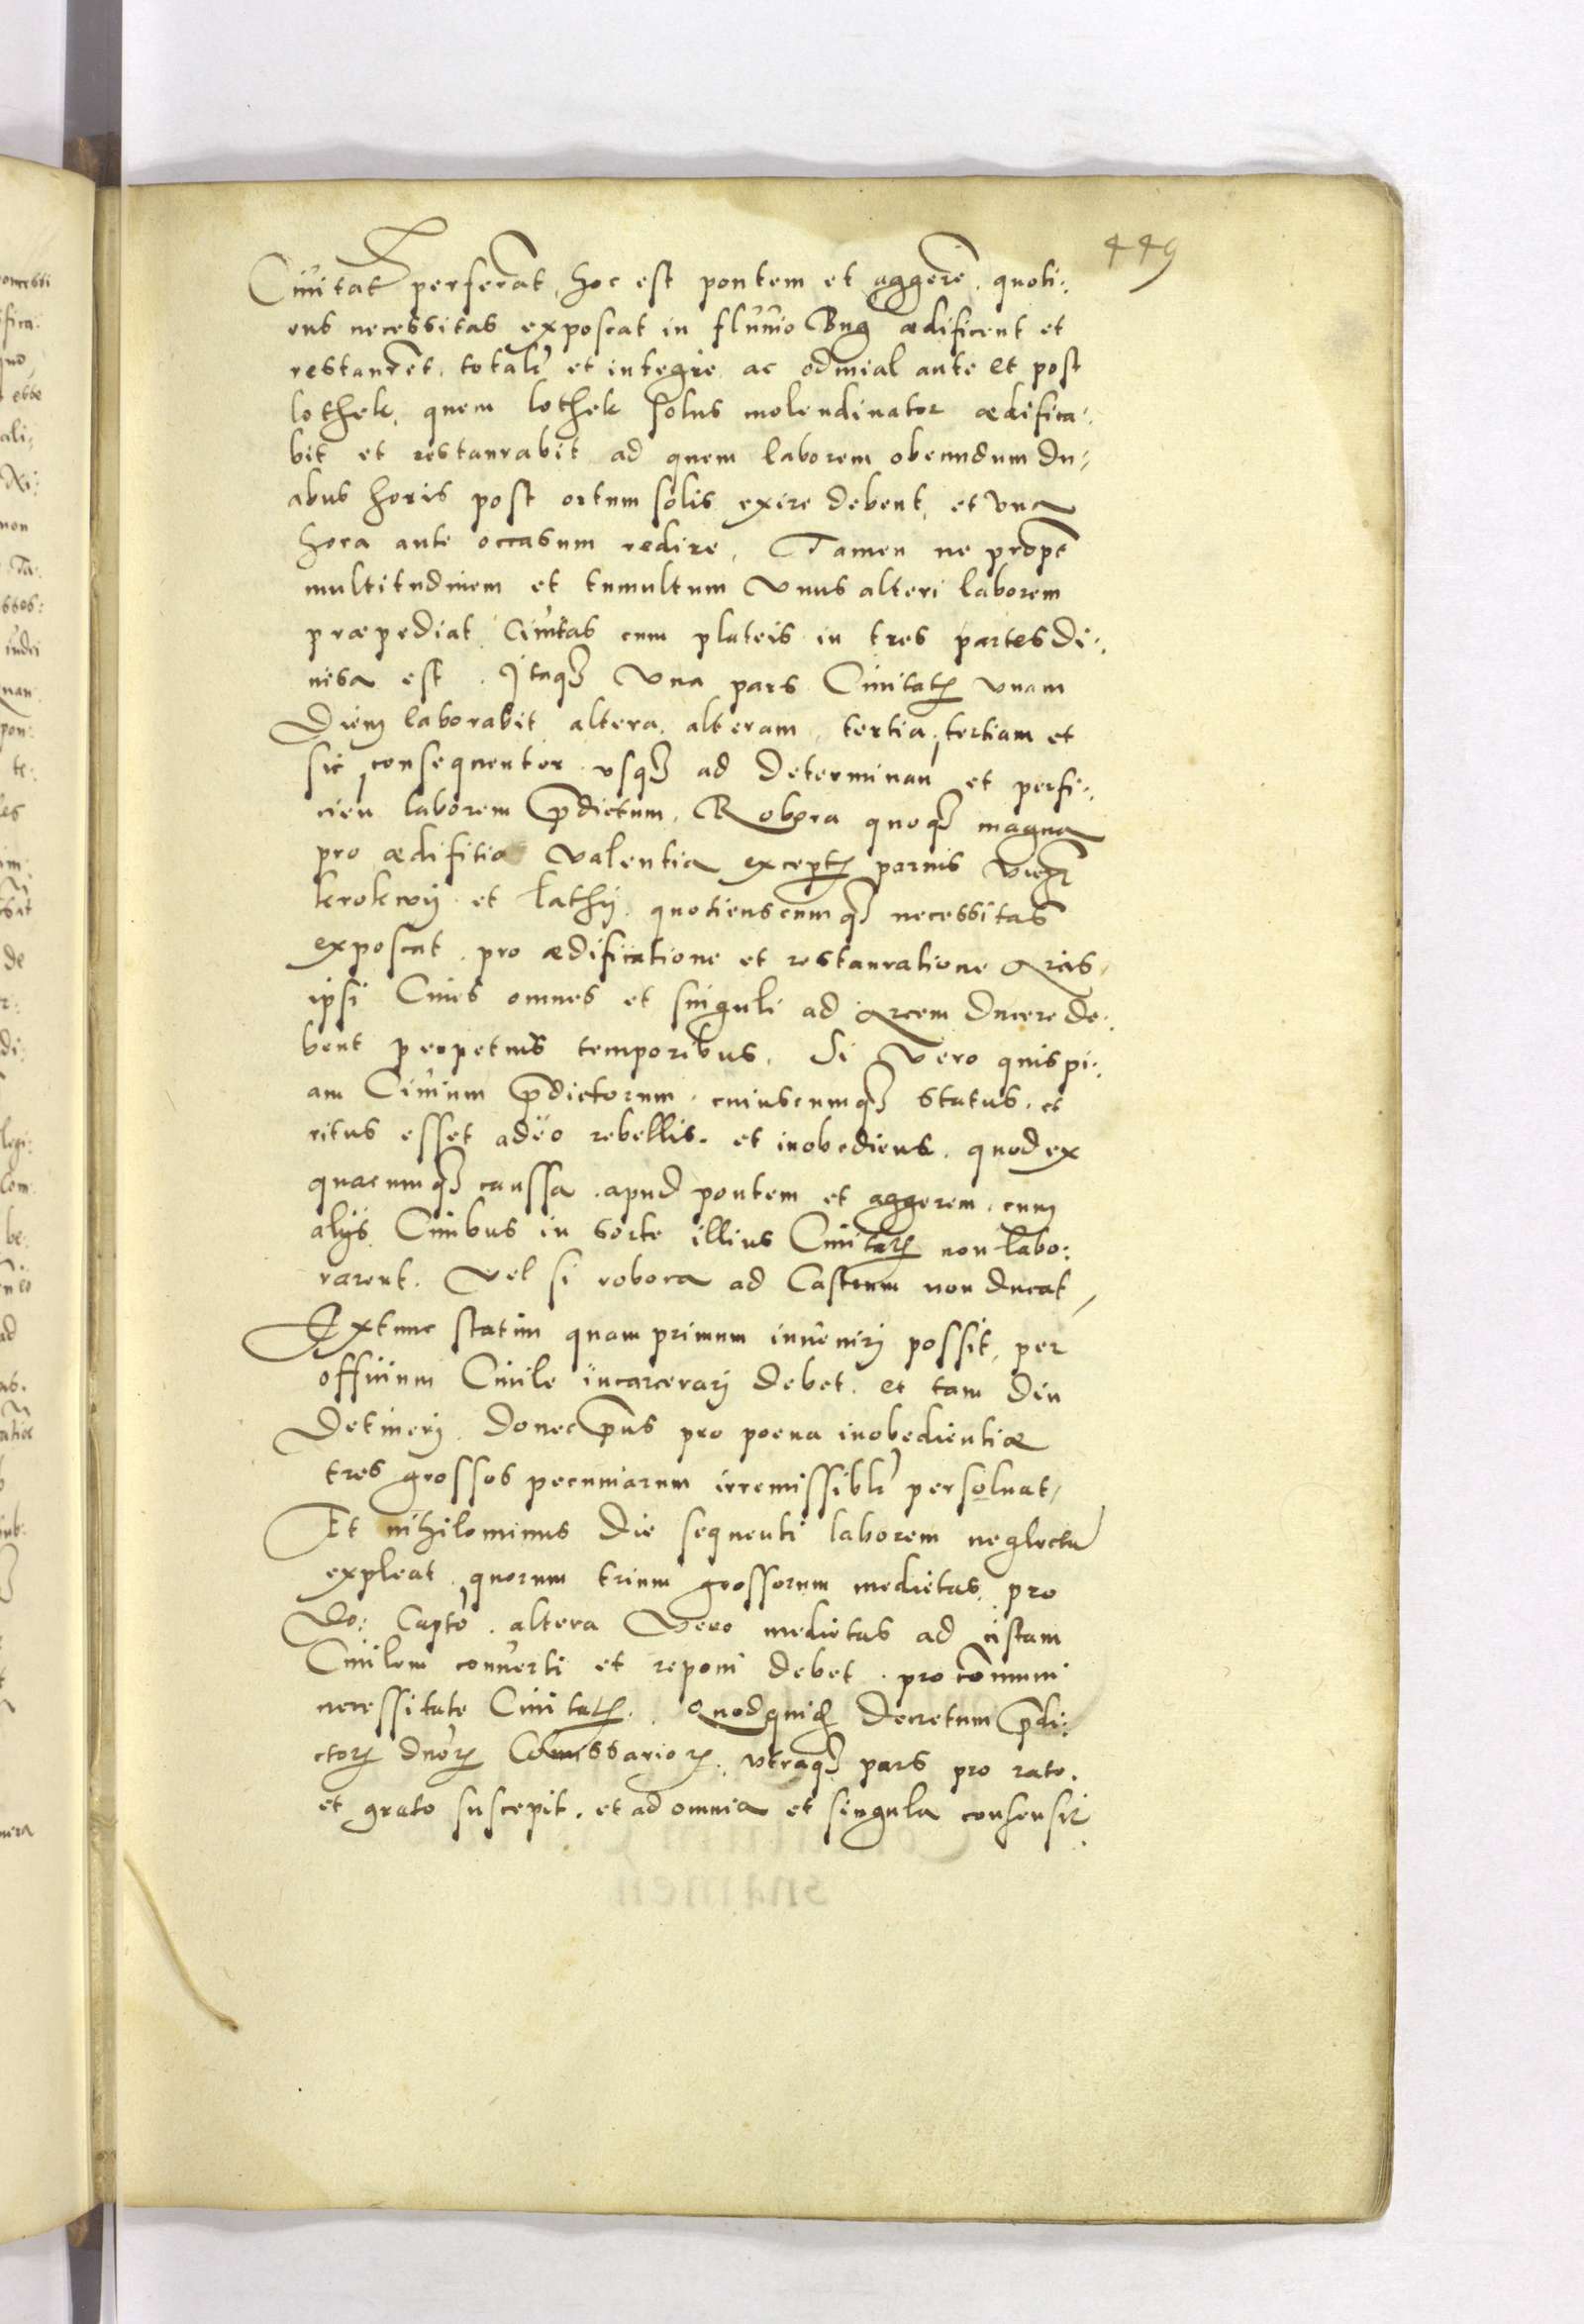 449
Ciuitat perferat, hoc est pontem et aggerē, quoti:
ens necessitas exposcat in fluuio Bug ædificent et
restaurēt, totalr et integre ac odmial ante et post
lothek, quem lothek solus molendinator ædifica:
bit et restaurabit ad quem laborem obeundum du:
abus horis post ortum solis exire debent, et vna
hora ante occasum redire, Tamen ne propt
multitudinem et tumultum vnus alteri laborem
præpediat Ciuitas cum plateis in tres partes di:
uisa est. Itaq3 vna pars Ciuitatꝭ vnam
Diem laborabit altera, alteram, tertia, tertiam et
sic consequenter vsq3 ad determinan et perfi:
cien laborem p̄dictum, Robora quoq3 magna
pro ædifitio valentia exceptꝭ paruis
krokwij et lathij quotienscumq3 necessitas
exposcat, pro ædificatione et restauratione Arcis,
ipsi Ciues omnes et singuli ad Arcem ducere de:
bent perpetuis temporibus, Si vero quispi:
am Ciuium p̄dictorum, cuiuscumq3 status, et
ritus esset adeo rebellis, et inobediens, quod ex
quacumq3 caussa, apud pontem et aggerem, cum
alijs Ciuibus in sorte illius Ciuitatꝭ non labo:
rarent. Vel si robora ad Castrum non ducat,
Extunc statim quam primum inuenirj possit, per
officium Ciuile incarcerarj debet, et tam diu
Detinerj, donec p̄ns pro poena inobedientiæ
tres grossos pecuniarum irremissiblr persoluat,
Et nihilominus die sequenti laborem neglectū
expleat, quorum trium grossorum medietas, pro
Do: Capto, altera Vero medietas ad cistam
Ciuilem conuerti et reponi debet, pro cōmuni
necessitate Ciuitatꝭ. Quodquid Decretum p̄di:
ctorꝝ dnorꝝ Comissariorꝝ, vtraq3 pars pro rato,
et grato suscepit, et ad omnia et singula consensit